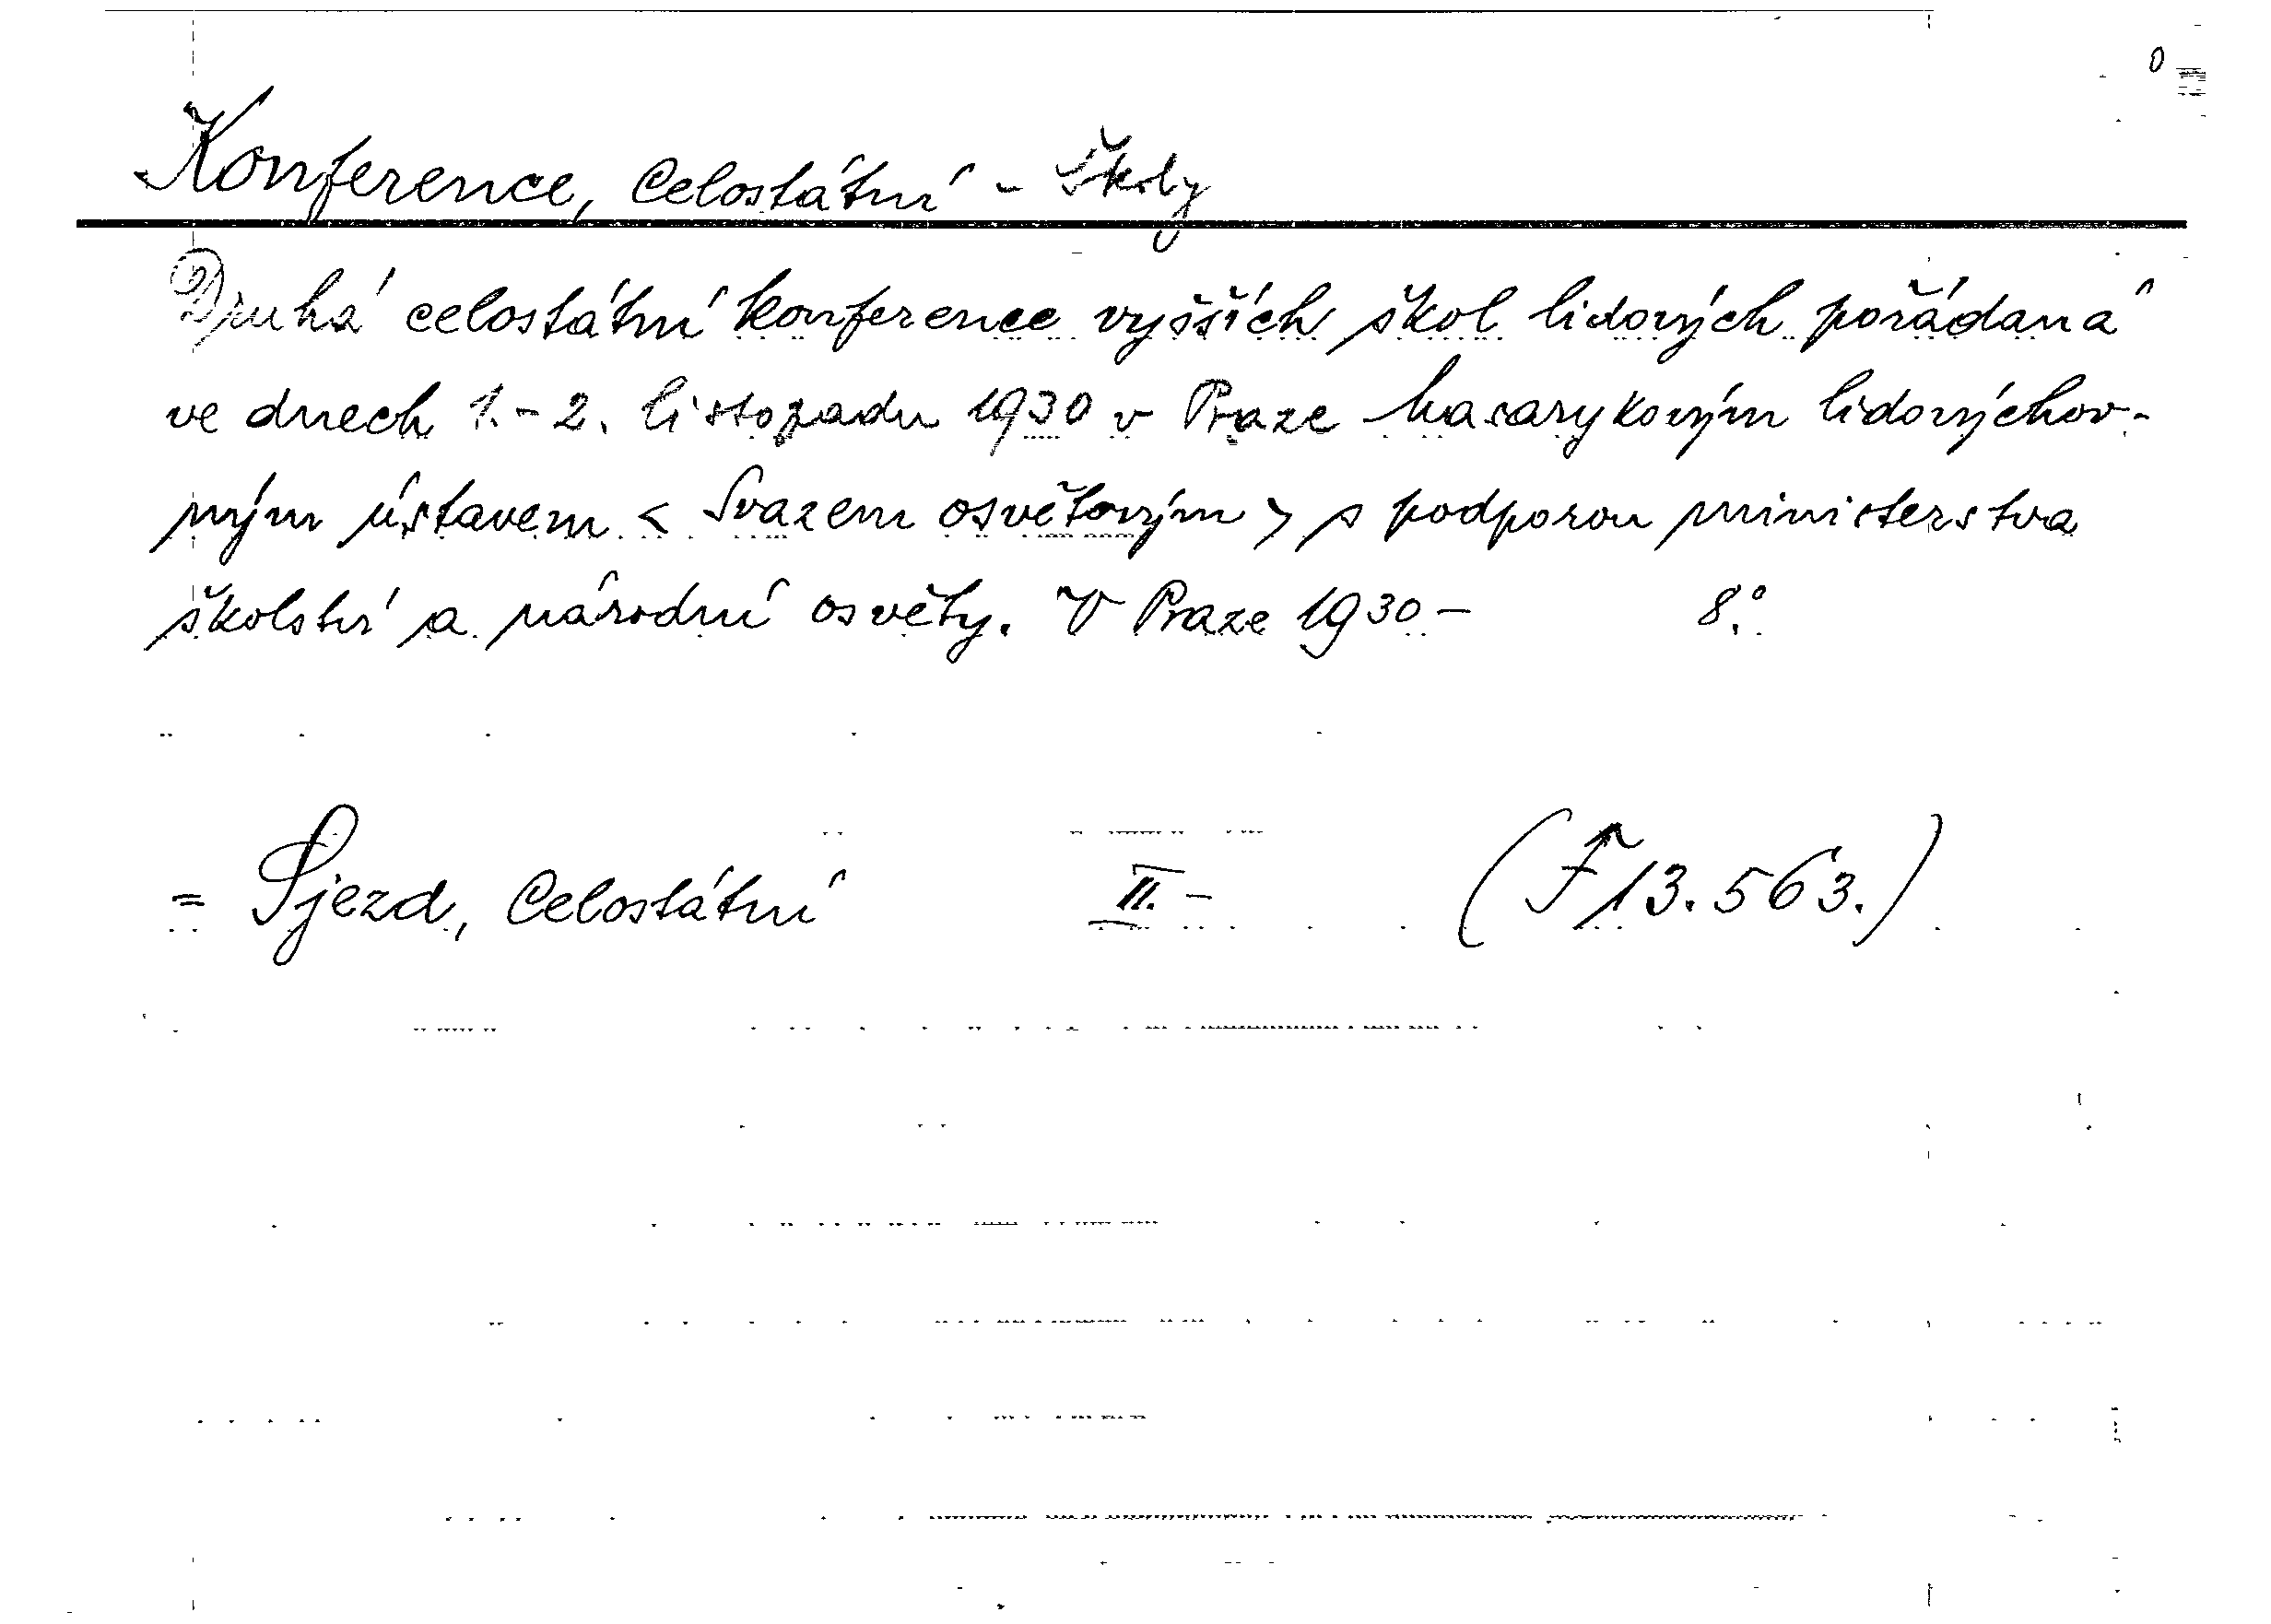 Konference, Celostátní - školy
Druhá celostátní konference vyšších škol lidových pořádaná
ve dnech 1.-2. listopadu 1930 v Praze Masarykovým lidovýchov-
ným ústavem < Svazem osvětovým > s podporou ministerstva
školství a národní osvěty. V Praze 1930 - 8.°
= Sjezd, Celostátní II. - (F 13.563.)